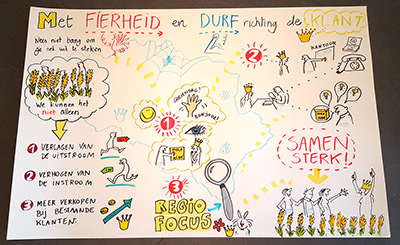 Met FIERHEID en DURF richting de KLANT
Wees niet bang om
je nek uit te steken
We kunnen het
niet alleen
1 VERLAGEN VAN
DE UITSTROOM
2 VERHOGEN VAN
DE INSTROOM
3 MEER VERKOPEN
BIJ BESTAANDE
KLANTEN.
GOEIENDAG!
BONJOUR!
1
2
KANTOOR
3
REGIO
FOCUS
SAMEN
STERK!